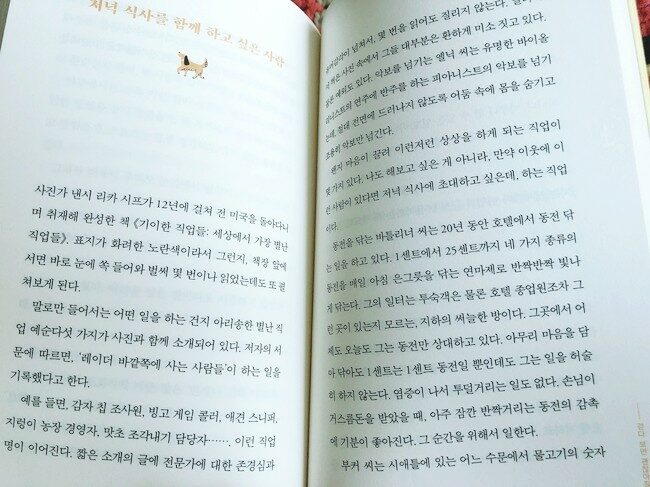 저녁 식사를 함께 하고 싶은 사람
사진가 낸시 리카 시프가 12년에 걸쳐 전 미국을 돌아다니
며 취재해 완성한 책 《기이한 직업들: 세상에서 가장 별난
직업들》. 표지가 화려한 노란색이라서 그런지, 책장 앞에
서면 바로 눈에 쏙 들어와 벌써 몇 번이나 읽었는데도 또 펼
쳐보게 된다.
말로만 들어서는 어떤 일을 하는 건지 아리송한 별난 직
업 예순다섯 가지가 사진과 함께 소개되어 있다. 저자의 서
문에 따르면, '레이더 바깥쪽에 사는 사람들'이 하는 일을
기록했다고 한다.
예를 들면, 감자 칩 조사원, 빙고 게임 콜러, 애견 스니퍼,
지렁이 농장 경영자, 맛초 조각내기 담당자…… 이런 직업
명이 이어진다. 짧은 소개의 글에 전문가에 대한 존경심과
넘쳐서, 몇 번을 읽어도 질리지 않는다.
책은 사진 속에서 그들 대부분은 환하게 미소 짓고 있다.
예외도 있다. 악보를 넘기는 엘닉 씨는 유명한 바이올
리니스트의 연주에 반주를 하는 피아니스트의 악보를 넘기
는데, 절대 전면에 드러나지 않도록 어둠 속에 몸을 숨기고
조용히 악보만 넘긴다.
왠지 마음이 끌려 이런저런 상상을 하게 되는 직업이
몇 가지 있다. 나도 해보고 싶은 게 아니라, 만약 이웃에 이
런 사람이 있다면 저녁 식사에 초대하고 싶은데, 하는 직업
이다.
동전을 닦는 바틀리너 씨는 20년 동안 호텔에서 동전 닦
는 일을 하고 있다. 1센트에서 25센트까지 네 가지 종류의
동전을 매일 아침 은그릇을 닦는 연마제로 반짝반짝 빛나
게 닦는다. 그의 일터는 투숙객은 물론 호텔 종업원조차 그
런 곳이 있는지 모르는, 지하의 써늘한 방이다. 그곳에서 어
제도 오늘도 그는 동전만 상대하고 있다. 아무리 마음을 담
아 닦아도 1센트는 1센트 동전일 뿐인데도 그는 일을 허술
히 하지 않는다. 염증이 나서 투덜거리는 일도 없다. 손님이
거스름돈을 받았을 때, 아주 잠깐 반짝거리는 동전의 감촉
에 기분이 좋아진다. 그 순간을 위해서 일한다.
부커 씨는 시애틀에 있는 어느 수문에서 물고기의 숫자